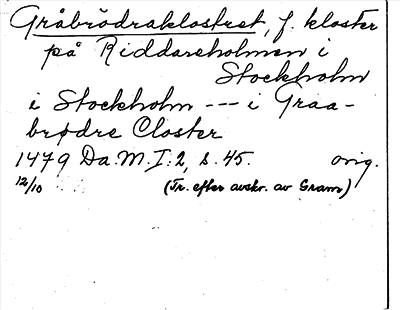 Gråbrödraklostret, f. kloster
på Riddareholmen i
Stockholm
i Stockholm --- i Graa-
brødre Closter
1479 Da. M. I: 2, s. 45. orig.
12/10 (Tr. efter avskr. av Gram)